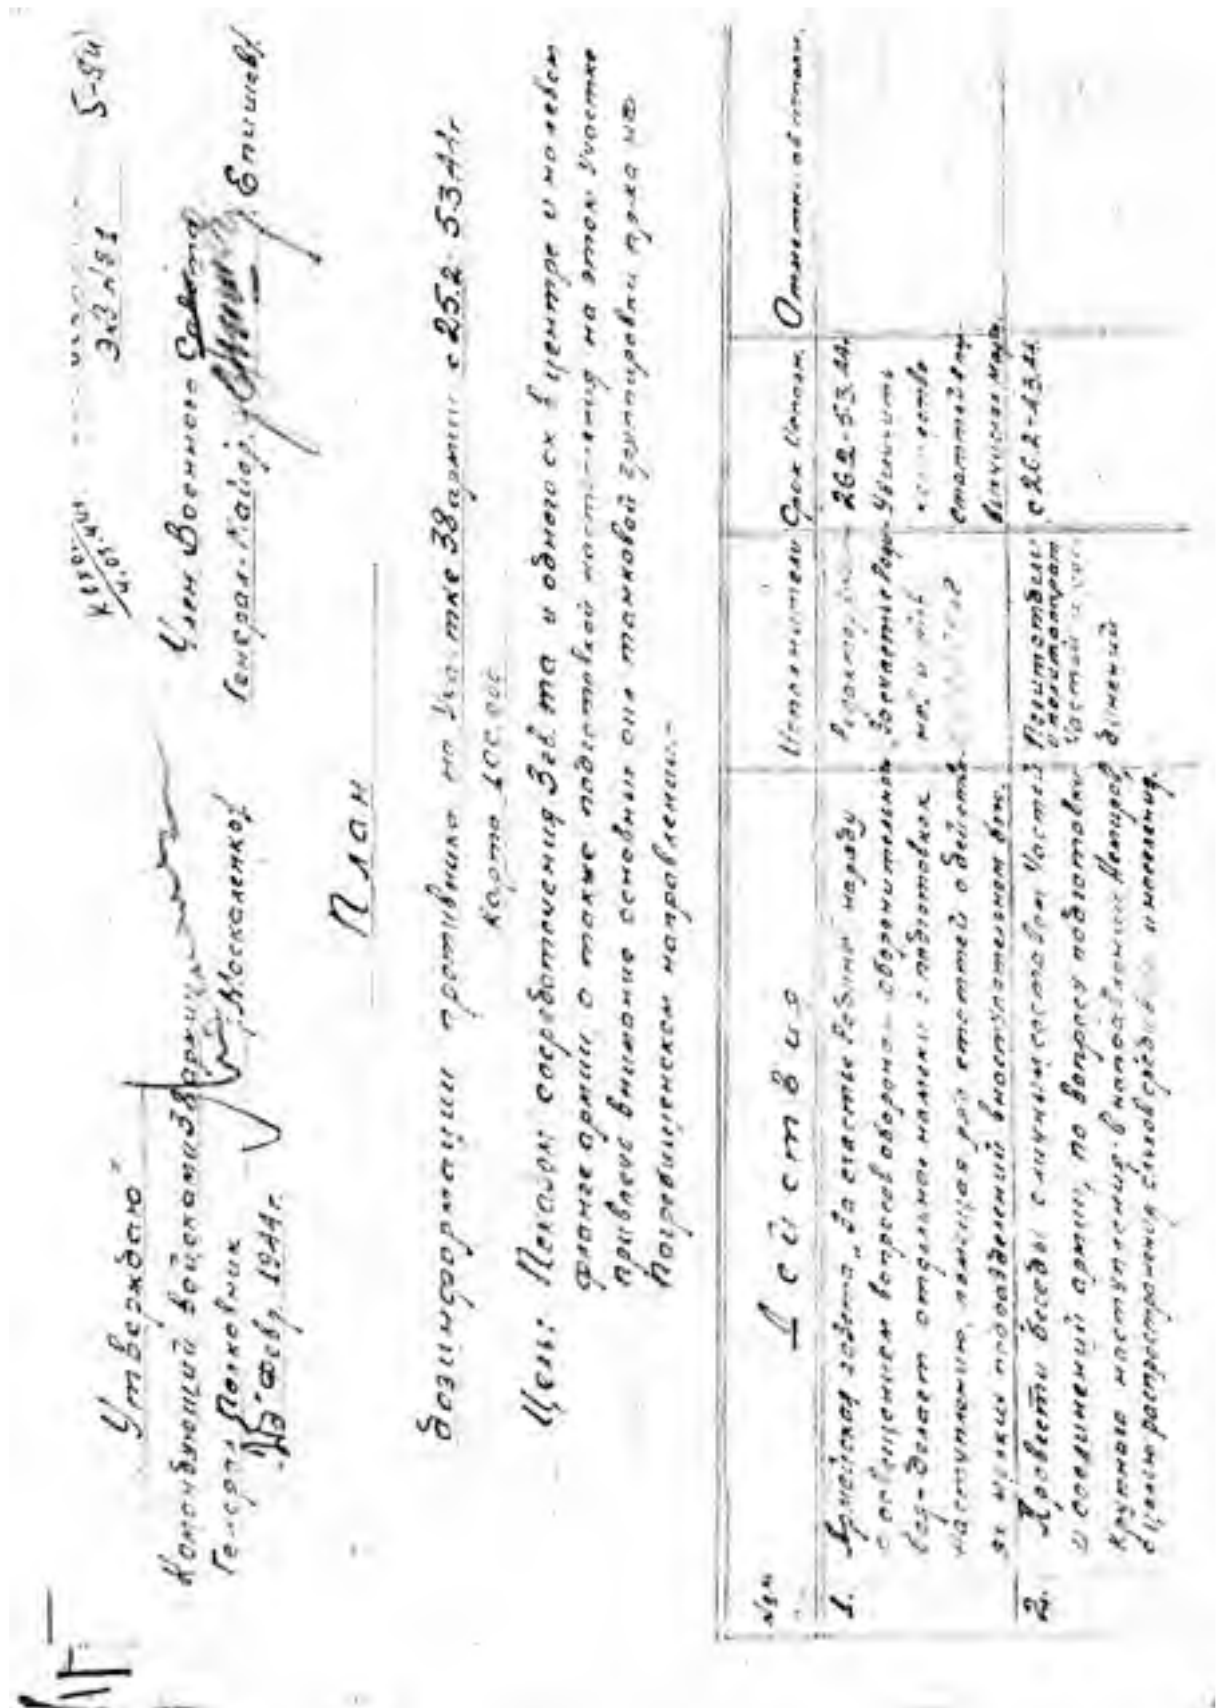 Экз № 1
"Утверждаю"
Член Военного Совета
Командующий войсками 38 армии
Генерал-Майор /Епишев/
Генерал Полковник /Москаленко/
Февр. 1944г.
План
дезинформации противника на участке 38 армии с 25.2-5.3.44г
карта 100.000
Цель: Показом сосредоточения 3 гв. та и одного ск в центре и на левом
фланге армии, а также подготовкой наступления на этом участке
привлечь внимание основных сил танковой группировки пр-ка на
Погребищенском направлении.-
Действия
Исполнители
Срок Исполн.
1. Армейская газета "За счастье Родины" наряду
с освещением вопросов обороны - оборонительного
боя - делает отдельные намеки о подготовке к
наступлению, помещая ряд статей о действи-
ях мелких подразделений в наступательном бою.
Редактор
"За счастье Роди-
ны"
26.2-5.3.44.
Увеличить
количество
статтей
2. Провести беседы с личным составом частей
и соединений армии, по вопросу подготовки
крупного наступления в направлении Немиров
с целью распространения слухов среди населения.
Политотделы
и политаппарат
частей и сое-
динений
с 26.2-1.3.44.